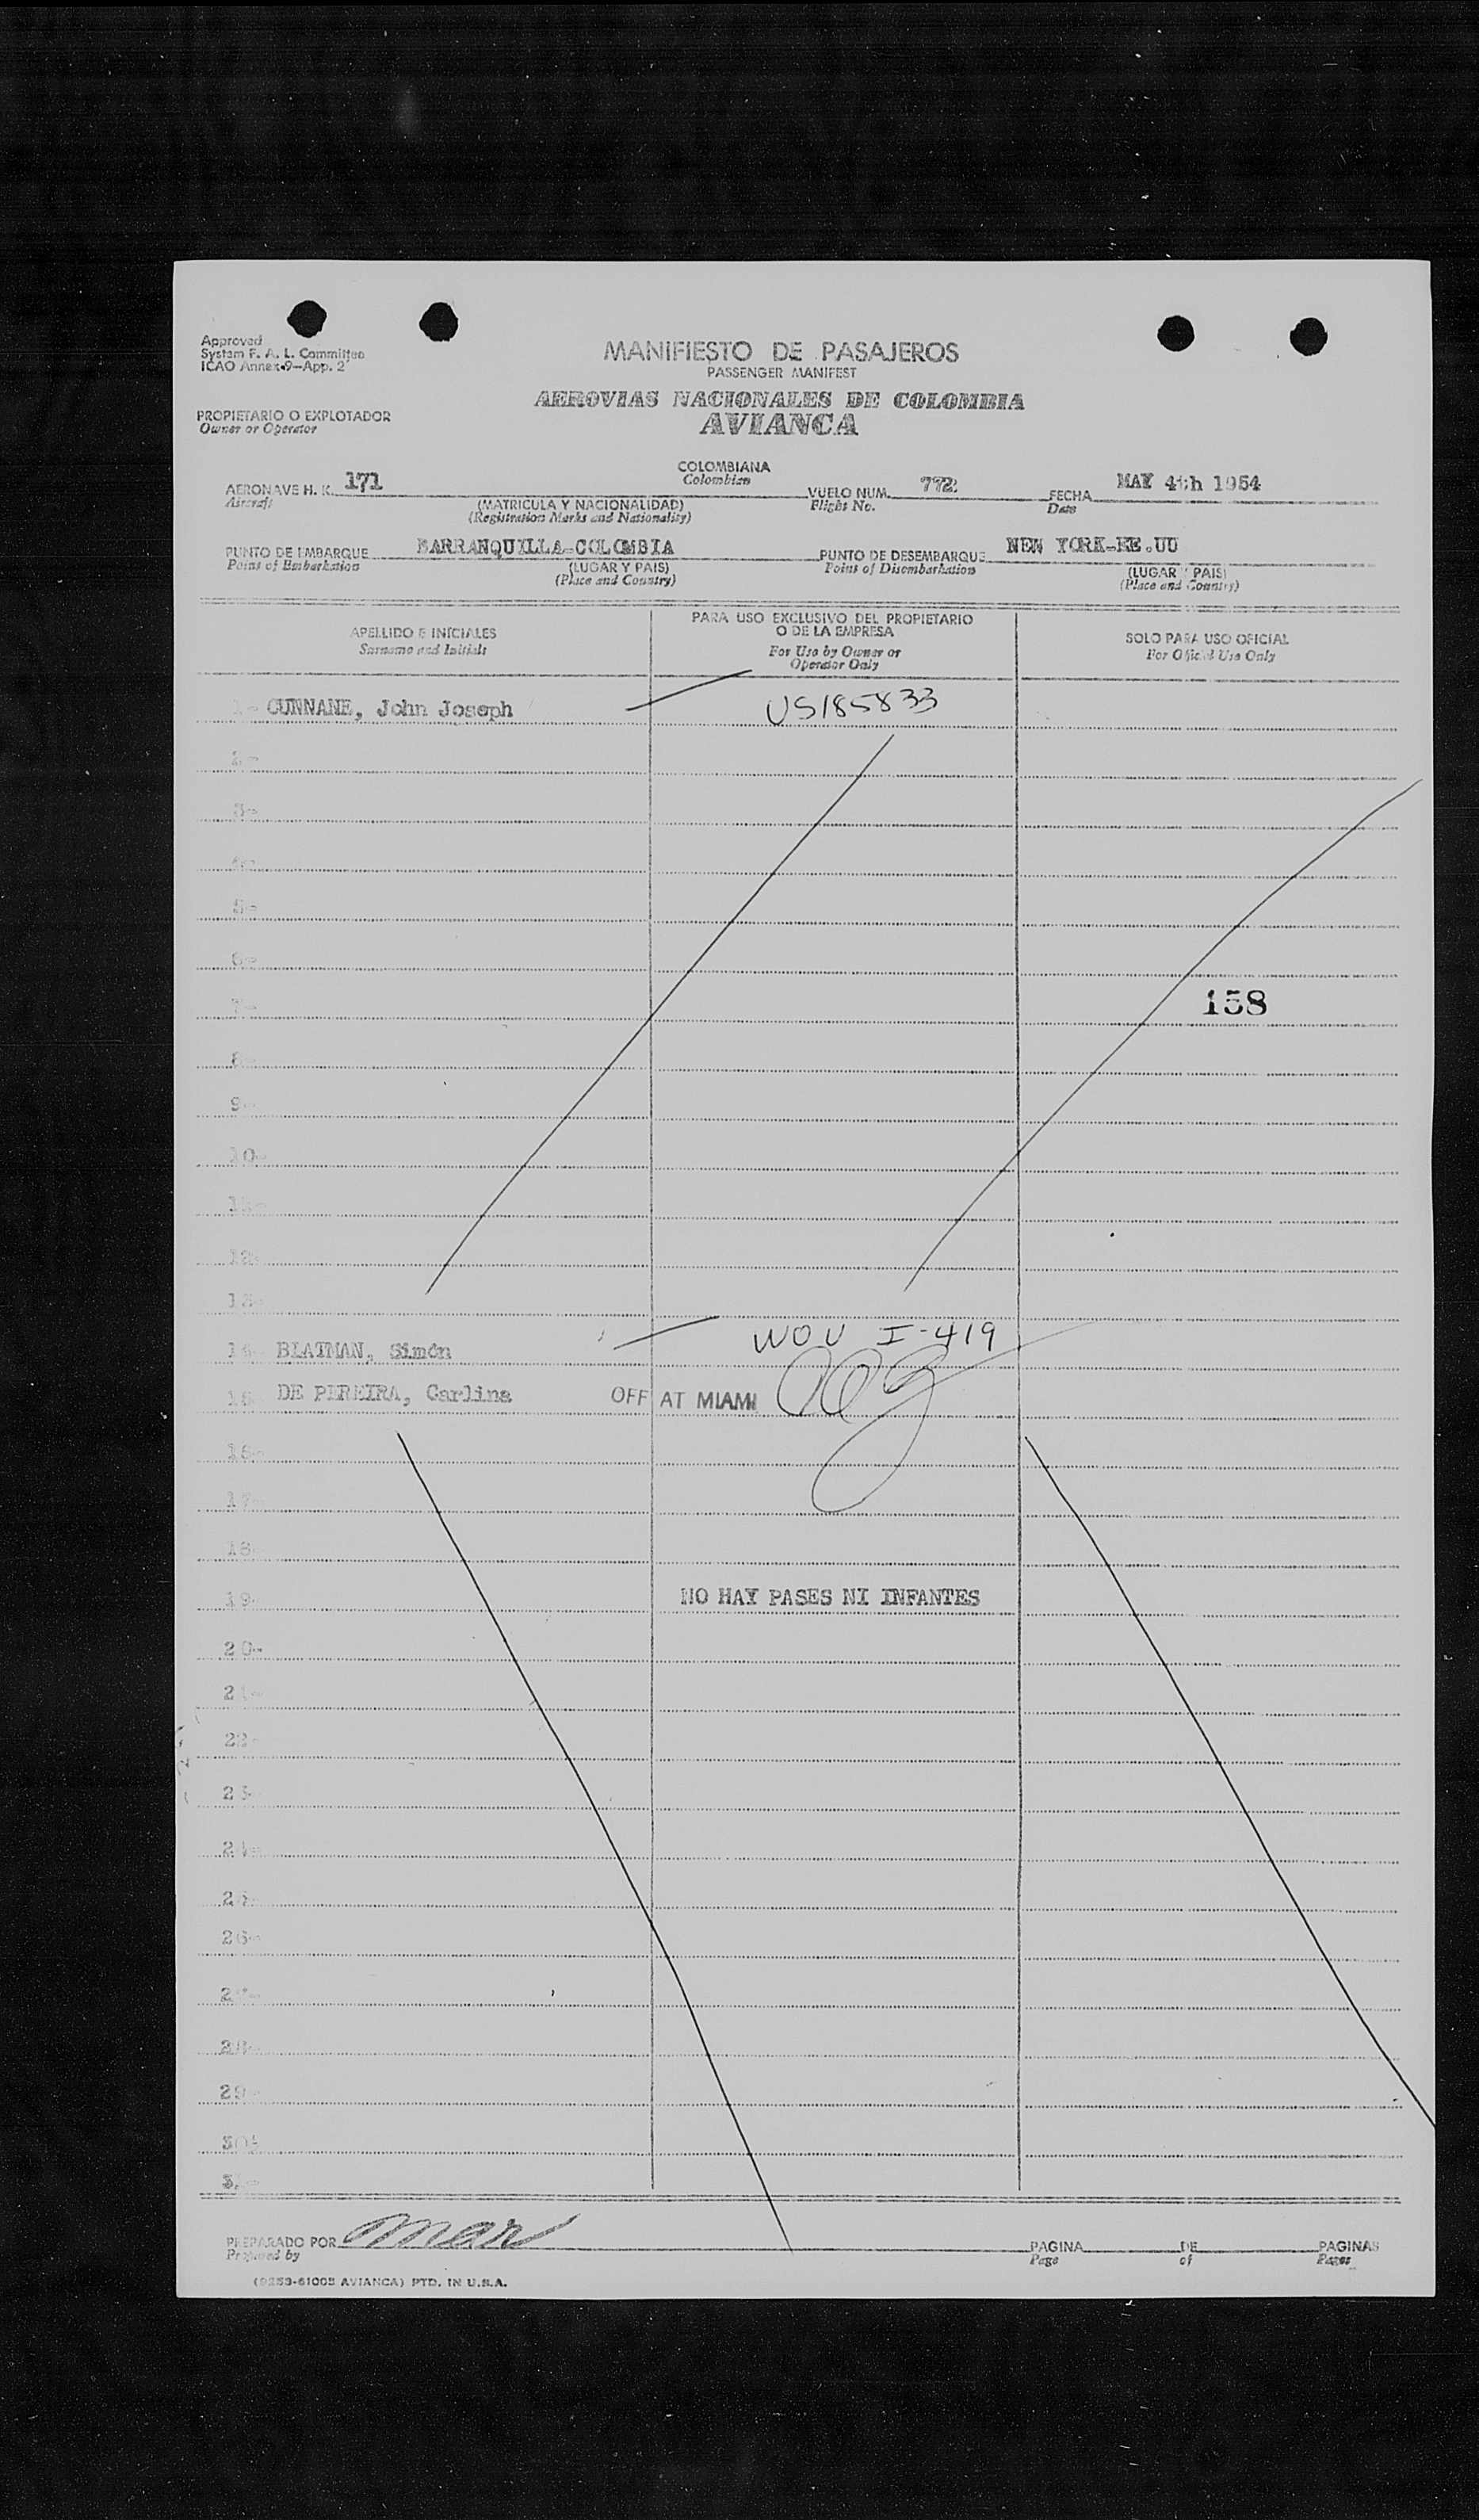 Approved
System F. A. L. Committee
ICAO Annex 9—App. 2
MANIFIESTO DE PASAJEROS
PASSENGER MANIFEST
AEROVIAS NACIONALES DE COLOMBIA
AVIANCA
PROPIETARIO O EXPLOTADOR
Owner or Operator
AERONAVE H. K. 171 COLOMBIANA VUELO NUM. 772 FECHA MAY 4th 1954
Aircraft Colombian Flight No. Date
(MATRICULA Y NACIONALIDAD)
(Registration Marks and Nationality)
PUNTO DE EMBARQUE BARRANQUILLA-COLOMBIA PUNTO DE DESEMBARQUE NEW YORK-EE.UU
Point of Embarkation (LUGAR Y PAIS) Point of Disembarkation (LUGAR Y PAIS)
(Place and Country) (Place and Country)
APELLIDO E INICIALES PARA USO EXCLUSIVO DEL PROPIETARIO O DE LA EMPRESA SOLO PARA USO OFICIAL
Surname and Initials For Use by Owner or Operator Only For Official Use Only
1- CUNNANE, John Joseph US185833
2-
3-
4-
5-
6-
7- 158
8-
9-
10-
11-
12-
13-
14- BLATMAN, Simón WOV I-419
15- DE PEREIRA, Carlina OFF AT MIAMI
16-
17-
18-
19- NO HAY PASES NI INFANTES
20-
21-
22-
23-
24-
25-
26-
27-
28-
29-
30-
31-
PREPARADO POR mar PAGINA DE PAGINAS
Prepared by Page of Pages
AVIANCA) PTD. IN U.S.A.